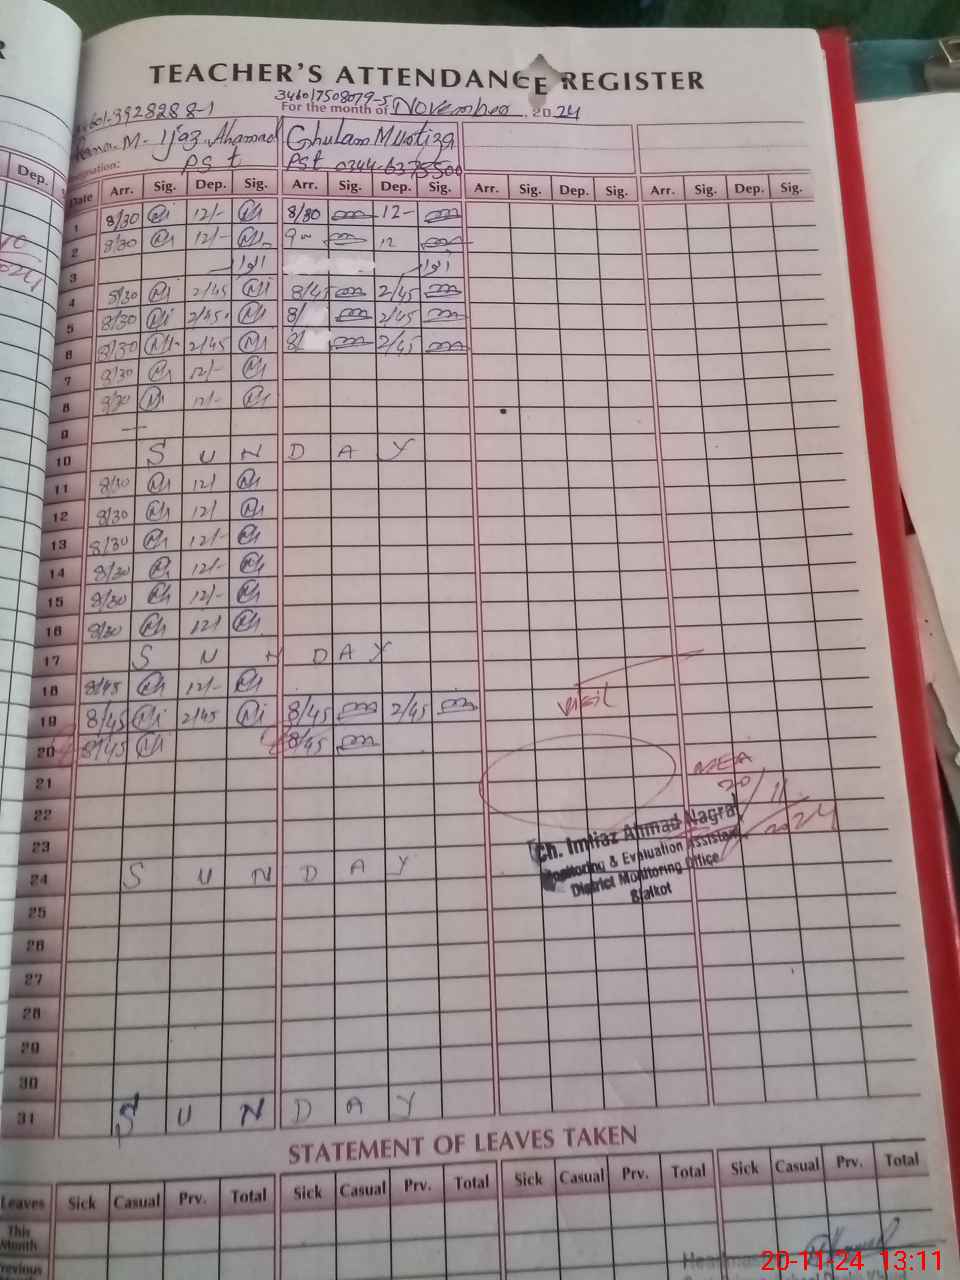 TEACHER'S ATTENDANCE REGISTER
34601-3928288-1 34601 7508079-5
For the month of November, 2024
M. Ijaz Ahamad Ghulam Murtiza
PSt PSt 0344-6375500
Dep. Date Arr. Sig. Dep. Sig. Arr. Sig. Dep. Sig. Arr. Sig. Dep. Sig. Arr. Sig. Dep. Sig.
1 8/30 12/- 8/30 12-
2 8/30 12/- 9- 12
3 اتوار اتوار
4 8/30 2/45 8/45 2/45
5 8/30 2/45 8/ 2/45
6 8/30 2/45 8/ 2/45
7 8/30 12/-
8 8/30 12/-
9 —
10 S U N D A Y
11 8/30 12/
12 8/30 12/
13 8/30 12/-
14 8/30 12/-
15 8/30 12/-
16 8/30 12/
17 S U N D A Y
18 8/45 12/-
19 8/45 2/45 8/45 2/45
20 8/45 8/45
21
22
23
24 S U N D A Y
25
26
27
28
29
30
31 S U N D A Y
MEA
20/11/2024
Ch. Imtiaz Ahmad Nagra
Monitoring & Evaluation Assistant
District Monitoring Office
Sialkot
STATEMENT OF LEAVES TAKEN
Leaves Sick Casual Prv. Total Sick Casual Prv. Total Sick Casual Prv. Total Sick Casual Prv. Total
This Month
Previous
20-11-24 13:11